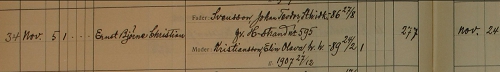 Fader: Svensson, Johan Teodor, Stuidk. 86 27/8
gr. H-strand nr 595
34 Nov. 5 1 Ernst Björne Christian 277 Nov. 24
Moder: Kristiansson, Elin Olava, h. h. 89 24/2 1
v. 1907 27/12